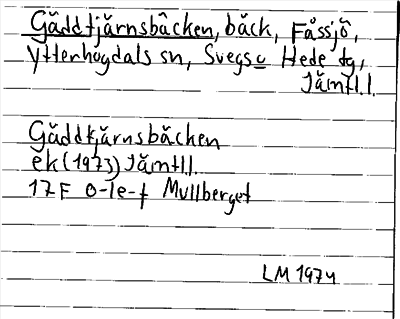 Gäddtjärnsbäcken, bäck, Fåssjö,
Ytterhogdals sn, Svegs o Hede tg,
Jämtl.l.
Gäddtjärnsbäcken
ek (1973) Jämtl.l.
17F 0-1e-f Mullberget
LM 1974